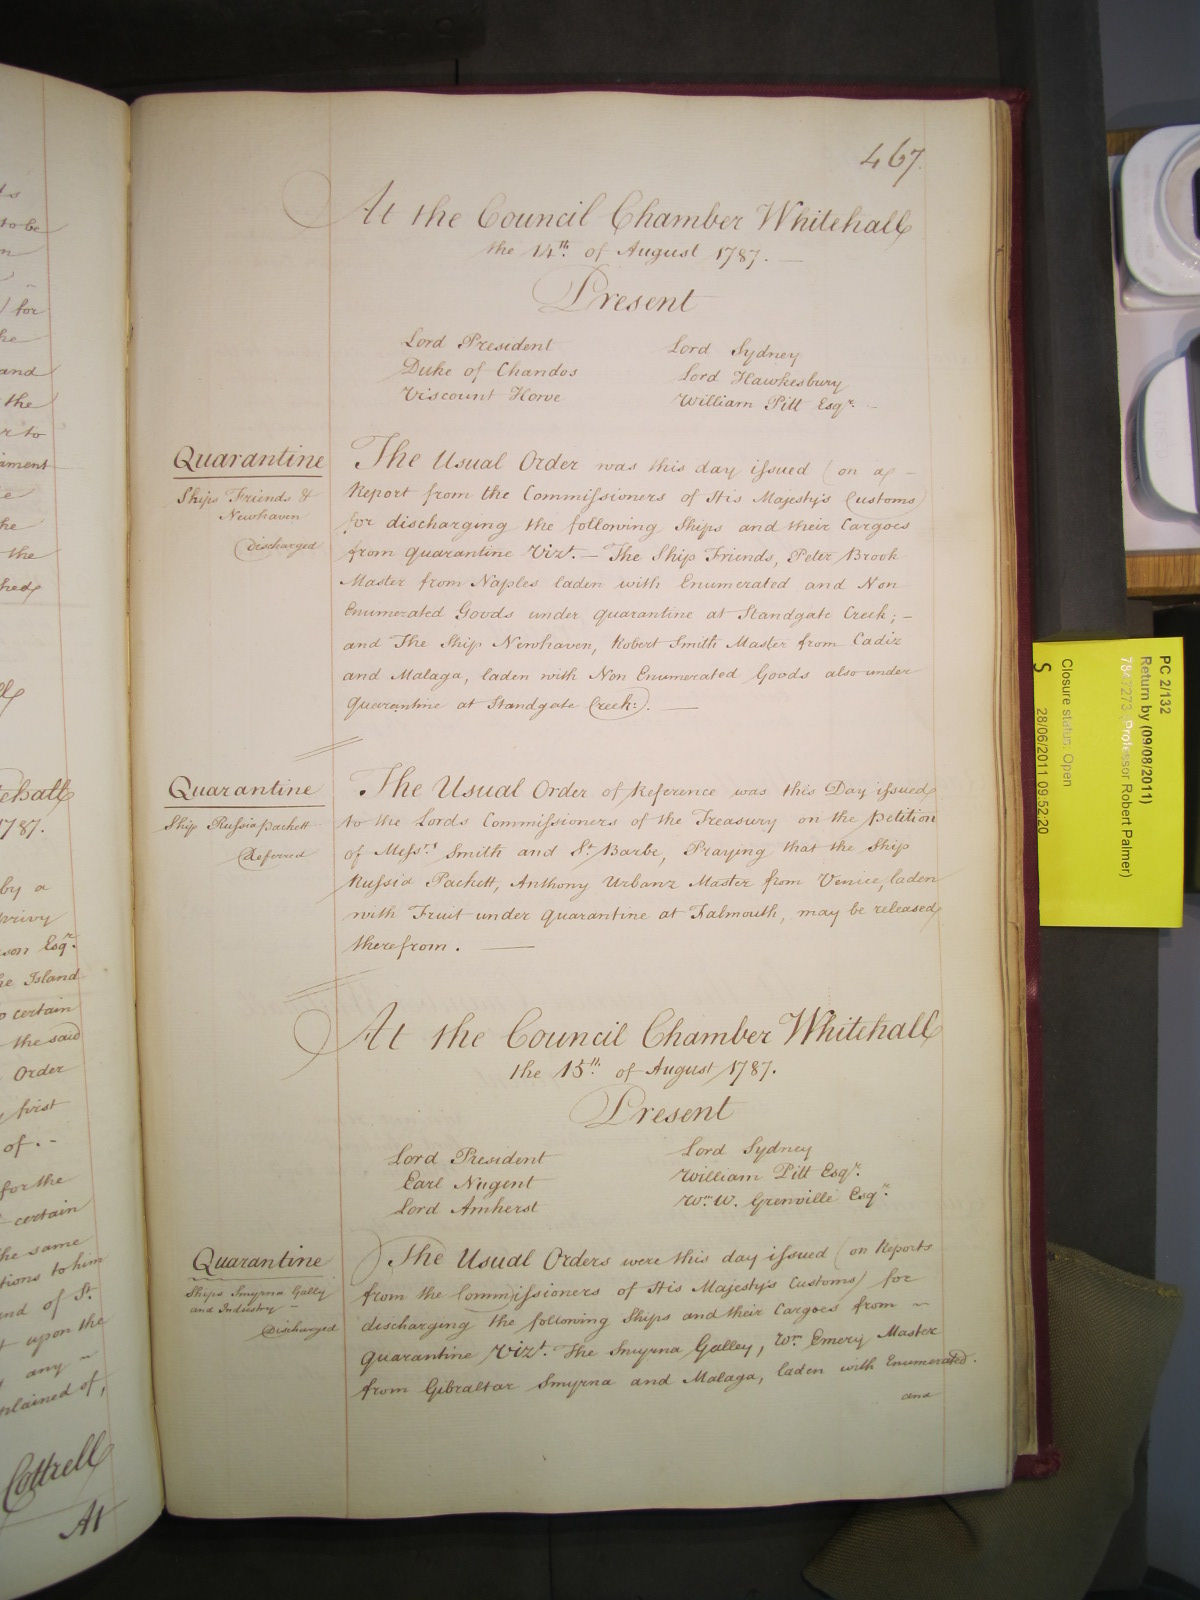 467.
At the Council Chamber Whitehall
the 14th. of August 1787. —
Present
Lord President
Duke of Chandos
Viscount Howe
Lord Sydney
Lord Hawkesbury
William Pitt Esqr. -
Quarantine
Ships Friends &
Newhaven
Discharged
The Usual Order was this day issued (on a -
Report from the Commissioners of His Majesty's Customs)
for discharging the following Ships and their Cargoes
from quarantine Vizt. — The Ship Friends, Peter Brook
Master from Naples laden with Enumerated and Non
Enumerated Goods under quarantine at Standgate Creek; -
and The Ship Newhaven, Robert Smith Master from Cadiz
and Malaga, laden with Non Enumerated Goods also under
quarantine at Standgate Creek. —
Quarantine
Ship Russia Packett
Referred
The Usual Order of Reference was this Day issued
to the Lords Commissioners of the Treasury on the Petition
of Messrs. Smith and St. Barbe, Praying that the Ship
Russia Packett, Anthony Urbanz Master from Venice, laden
with Fruit under quarantine at Falmouth, may be released
therefrom. —
At the Council Chamber Whitehall
the 15th. of August 1787.
Present
Lord President
Earl Nugent
Lord Amherst
Lord Sydney
William Pitt Esqr.
Wm. W. Grenville Esqr.
Quarantine
Ships Smyrna Gally
and Industry -
Discharged
The Usual Orders were this day issued (on Reports
from the Commissioners of His Majesty's Customs) for
discharging the following Ships and their Cargoes from ~
Quarantine Vizt. The Smyrna Galley, Wm. Emery Master
from Gibraltar Smyrna and Malaga, laden with Enumerated.
and
to be
for
and
the
the
1787.
by a
son Esqr.
Island
certain
the said
Order
first
of. -
for the
certain
the same
to him
and of St.
upon the
any ~
Cottrell
At
PC 2/132
Return by (09/08/2011)
7847273 (Professor Robert Palmer)
Closure status: Open
S
28/06/2011 09:52:20